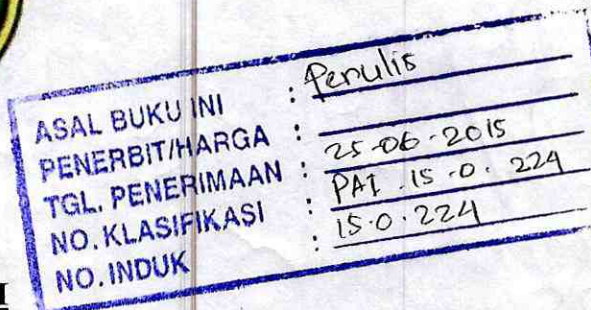 ASAL BUKU INI : Penulis
PENERBIT/HARGA :
TGL. PENERIMAAN : 25-06-2015
NO. KLASIFIKASI : PAI .15-0. 224
NO. INDUK : 15.0.224